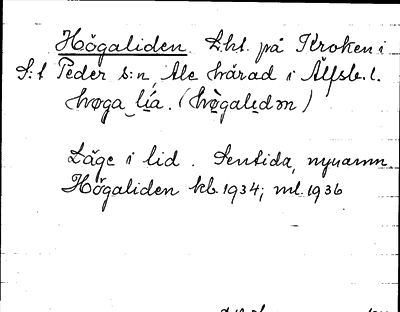 Högaliden Lht. på Kroken i
S:t Peder s:n Ale härad i Älfsb. l.
høga lia. (høgalidən)
Läge i lid. Sentida, nynamn.
Högaliden kb. 1934; ml. 1936